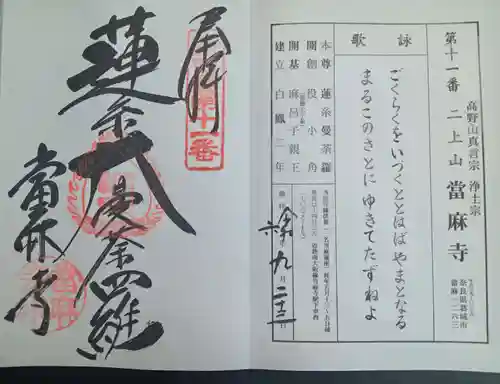 第十一番
高野山真言宗 浄土宗
二上山 當麻寺
奈良県葛城市
當麻一二六三
詠歌
ごくらくをいづくととはばやまとなる
まるこのさとに ゆきてたずねよ
本尊 蓮糸曼荼羅
開創 役小角
開基 麻呂子親王
建立 白鳳二年
九月二十二日
奉拝
第十一番
蓮糸大曼荼羅
當麻寺